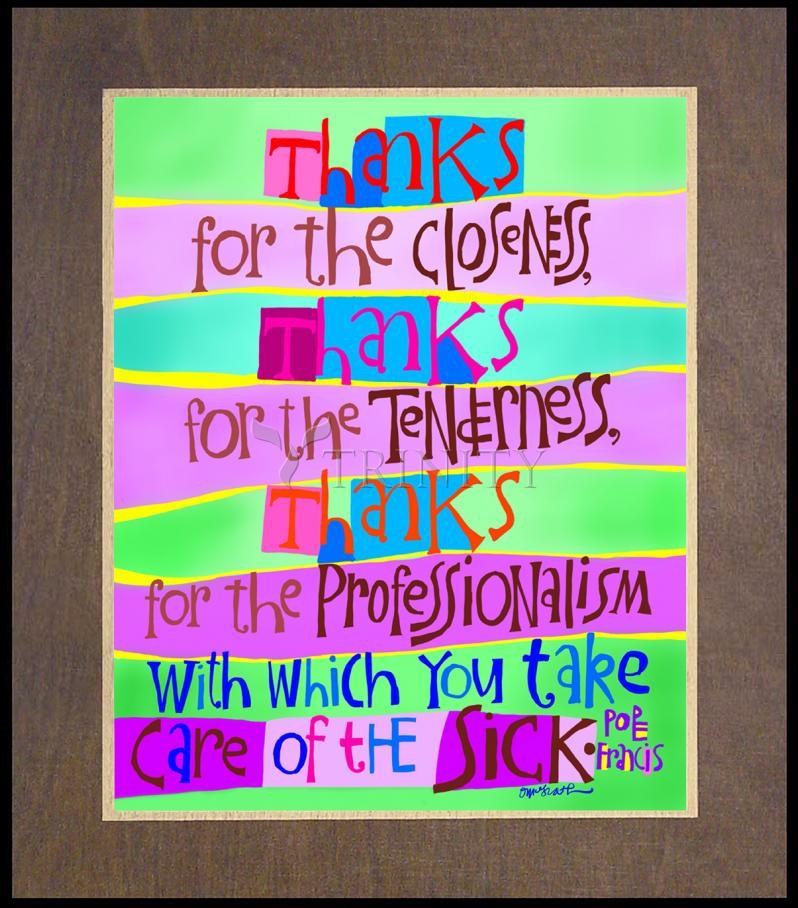 Thanks
for the Closeness,
Thanks
for the Tenderness,
TRINITY
Thanks
for the Professionalism
With Which You take
Care of the Sick.
Pope
Francis